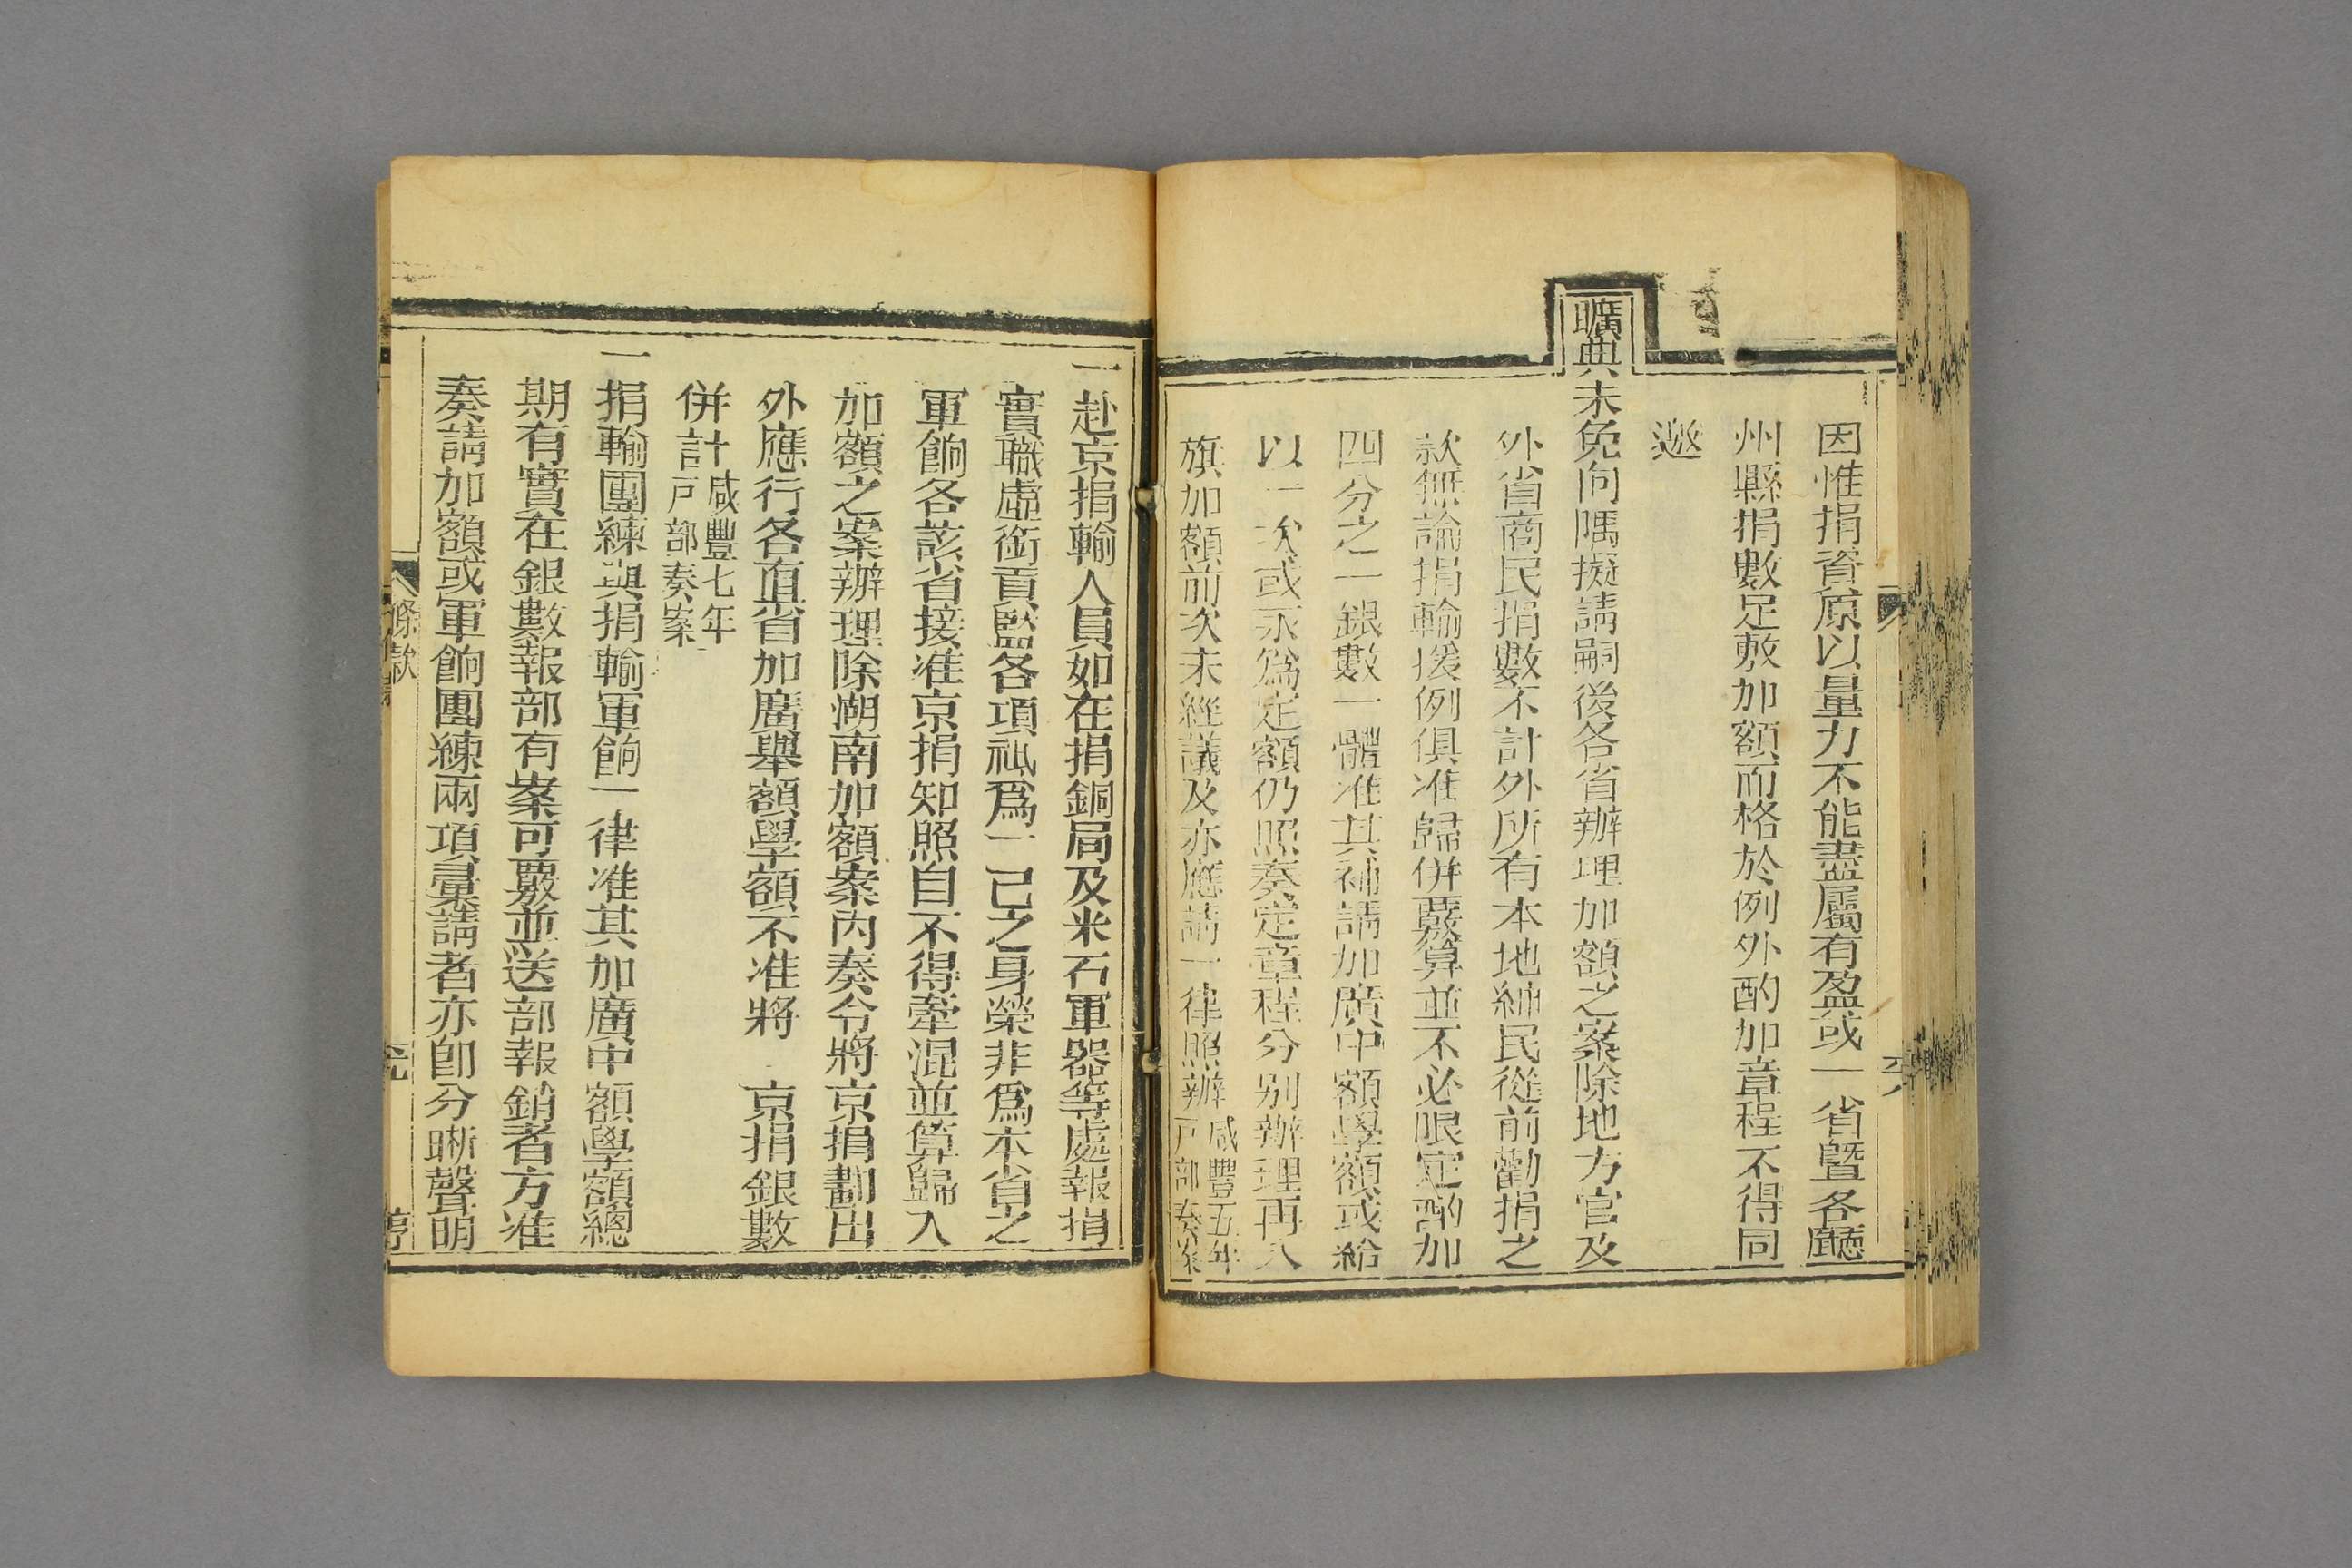 因惟捐資原以量力不能盡屬有盈或一省暨各廳
州縣捐數足敷加額而格於例外酌加章程不得同
邀
曠典未免向隅擬請嗣後各省辦理加額之案除地方官及
外省商民捐數不計外所有本地紳民從前勸捐之
款無論捐輸援例俱准歸併覈算並不必限定酌加
四分之一銀數一體准其補請加廣中額學額或給
以一次或永為定額仍照奏定章程分別辦理再入
旗加額前次未經議及亦應請一律照辦咸豐五年
戸部奏案
一赴京捐輸人員如在捐銅局及米石軍器等處報捐
實職虛銜貢監各項祗爲一己之身榮非爲本省之
軍餉各該省接准京捐知照自不得牽混並算歸入
加額之案辦理除湖南加額案內奏令將京捐劃出
外應行各直省加廣舉額學額不准將京捐銀數
併計咸豐七年
戸部奏案
一捐輸團練與捐輸軍餉一律准其加廣中額學額總
期有實在銀數報部有案可覈並送部報銷者方准
奏請加額或軍餉團練兩項彙請者亦卽分晰聲明
條款